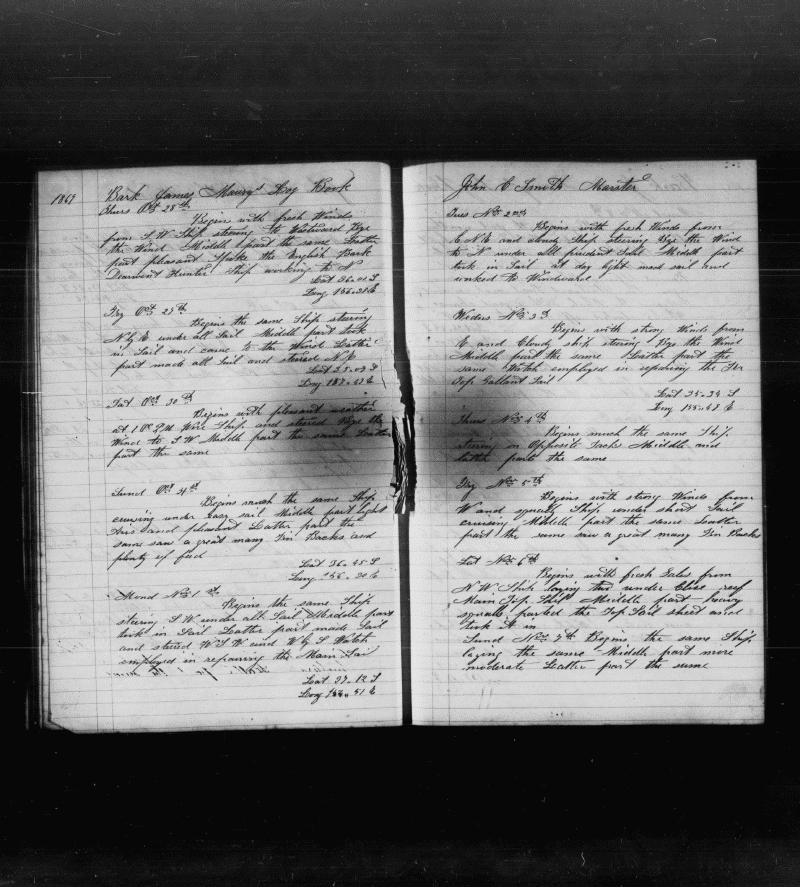 1869
Bark James Maury's Log Book
Thurs Oct 28th
Begins with fresh Winds
from S.W. Ship steering to Eastward Bye
the Wind Middle part the same Latter
part pleasant Spoke the English Bark
Hunter Ship working to N
Lat 36.01 S
Long 156.28 E
Fry Oct 29th
Begins the same Ship steering
N by E under all Sail Middle part took
in Sail and came to the Wind Latter
part made all Sail and steered N.E
Lat 35.09 S
Long 157.47 E
Sat Oct 30th
Begins with pleasant weather
at 1 O P.M. Wore Ship and steered Bye the
Wind to S.W Middle part the same Latter
part the same
Sund Oct 31st
Begins much the same Ship
cruising under easy sail Middle part light
Airs and pleasant Latter part the
same saw a great many Fin Backs and
plenty of feed
Lat 36.45 S
Long 156.20 E
Mond Nov 1st
Begins the same Ship
steering S.W under all Sail Middle part
took in Sail Latter part made Sail
and steered W.S.W and W by S Watch
employed in repairing the Main Sail
Lat 37.12 S
Long 155.51 E
John C Smith Marster
Tues Nov 2nd
Begins with fresh Winds from
E.N.E and cloudy Ship steering Bye the Wind
to N under all prudent Sail Middle part
took in Sail at day light mad sail and
worked to Windward
Wednes Nov 3d
Begins with strong Winds from
E and Cloudy ship steering Bye the Wind
Middle part the same Latter part the
same Watch employed in repairing the For
Top Gallant Sail
Lat 35.34 S
Long 155.47 E
Thurs Nov 4th
Begins much the same Ship
steering in Opposite Tacks Middle and
latter parts the same
Fry Nov 5th
Begins with strong Winds from
W and squally Ship under short Sail
cruising Middle part the same Latter
part the same saw a great many Fin Backs
Sat Nov 6th
Begins with fresh Gales from
N.W Ship laying under Close reef
Main Top Sail Middle part heavy
squalls parted the Top Sail sheet and
took it in
Sund Nov 7th Begins the same Ship
laying the same Middle part more
moderate Latter part the same